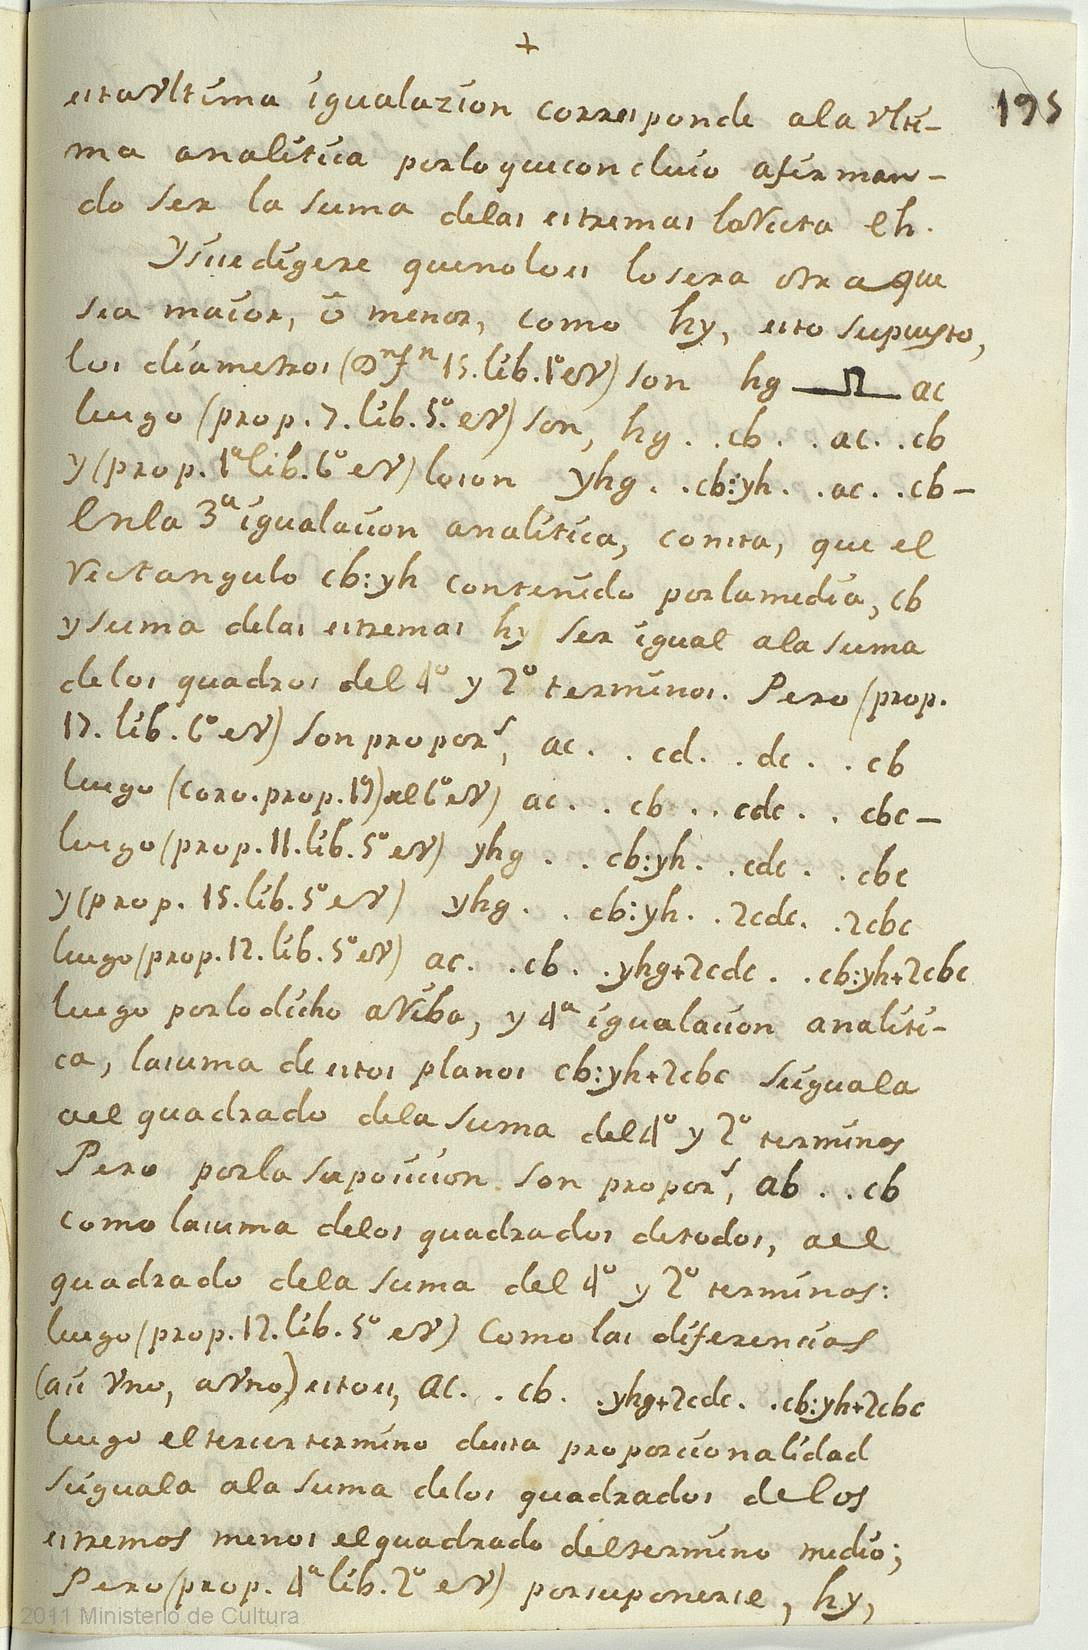 +
195
esta vltima igualazion corresponde ala vlti-
ma analitica porloqueconcluio afirman-
do ser la suma delas estremas la recta eh.
Ysise digere quenoloes losera otra que
sea maior, ò menor, como hy, esto supuesto,
los diametros (Dnfn 15. lib. 1º ev) son hg ac
luego (prop. 7. lib. 5º ev) son, hg . . cb . . ac . . cb
y (prop. 1ª lib. 6º ev) loson yhg . . cb:yh . . ac . . cb-
Enla 3ª igualacion analitica, consta, que el
rectangulo cb:yh contenido porlamedia, cb
y suma delas estremas hy ser igual ala suma
delos quadros del 4º y 2º terminos. Pero (prop.
17. lib. 6º ev) son propors, ac . . cd . . dc . . cb
luego (coro. prop. 19) del 6º ev) ac . . cb . . cdc . . cbc-
luego (prop. 11. lib. 5º ev) yhg . . cb:yh . . cdc . . cbc
y (prop. 15. lib. 5º ev) yhg . . cb:yh . . 2cdc . . 2cbc
luego (prop. 12. lib. 5º ev) ac . . cb . . yhg+2cdc . . cb:yh+2cbc
luego porlodicho ariba, y 4ª igualacion analiti-
ca, lasuma de estos planos cb:yh+2cbc siguala
ael quadrado dela suma del 4º y 2º terminos
Pero porla suposicion son propors, ab . . cb
como lasuma delos quadrados detodos, ael
quadrado dela suma del 4º y 2º terminos:
luego (prop. 12. lib. 5º ev) Como las diferencias
(asi vno, avno,) estoes, ac . . cb . . yhg+2cdc . . cb:yh+2cbc
luego eltercer termino desta proporcionalidad
siguala ala suma delos quadrados delos
estremos menos elquadrado deltermino medio;
Pero (prop. 4ª lib. 2º ev) porsuponerse, hy,
2011 Ministerio de Cultura